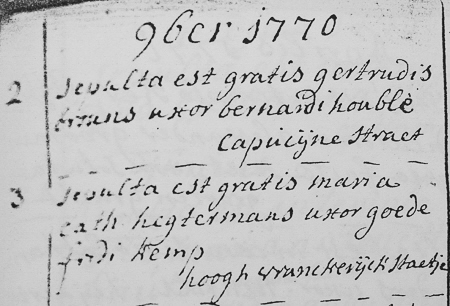 9ber 1770
2 sepulta est gratis gertrudis
uxor bernardi houble
capucijne straet
3 sepulta est gratis maria
cath hegtermans uxor goede
fridi kemp
hoogh vranckerijck straetje